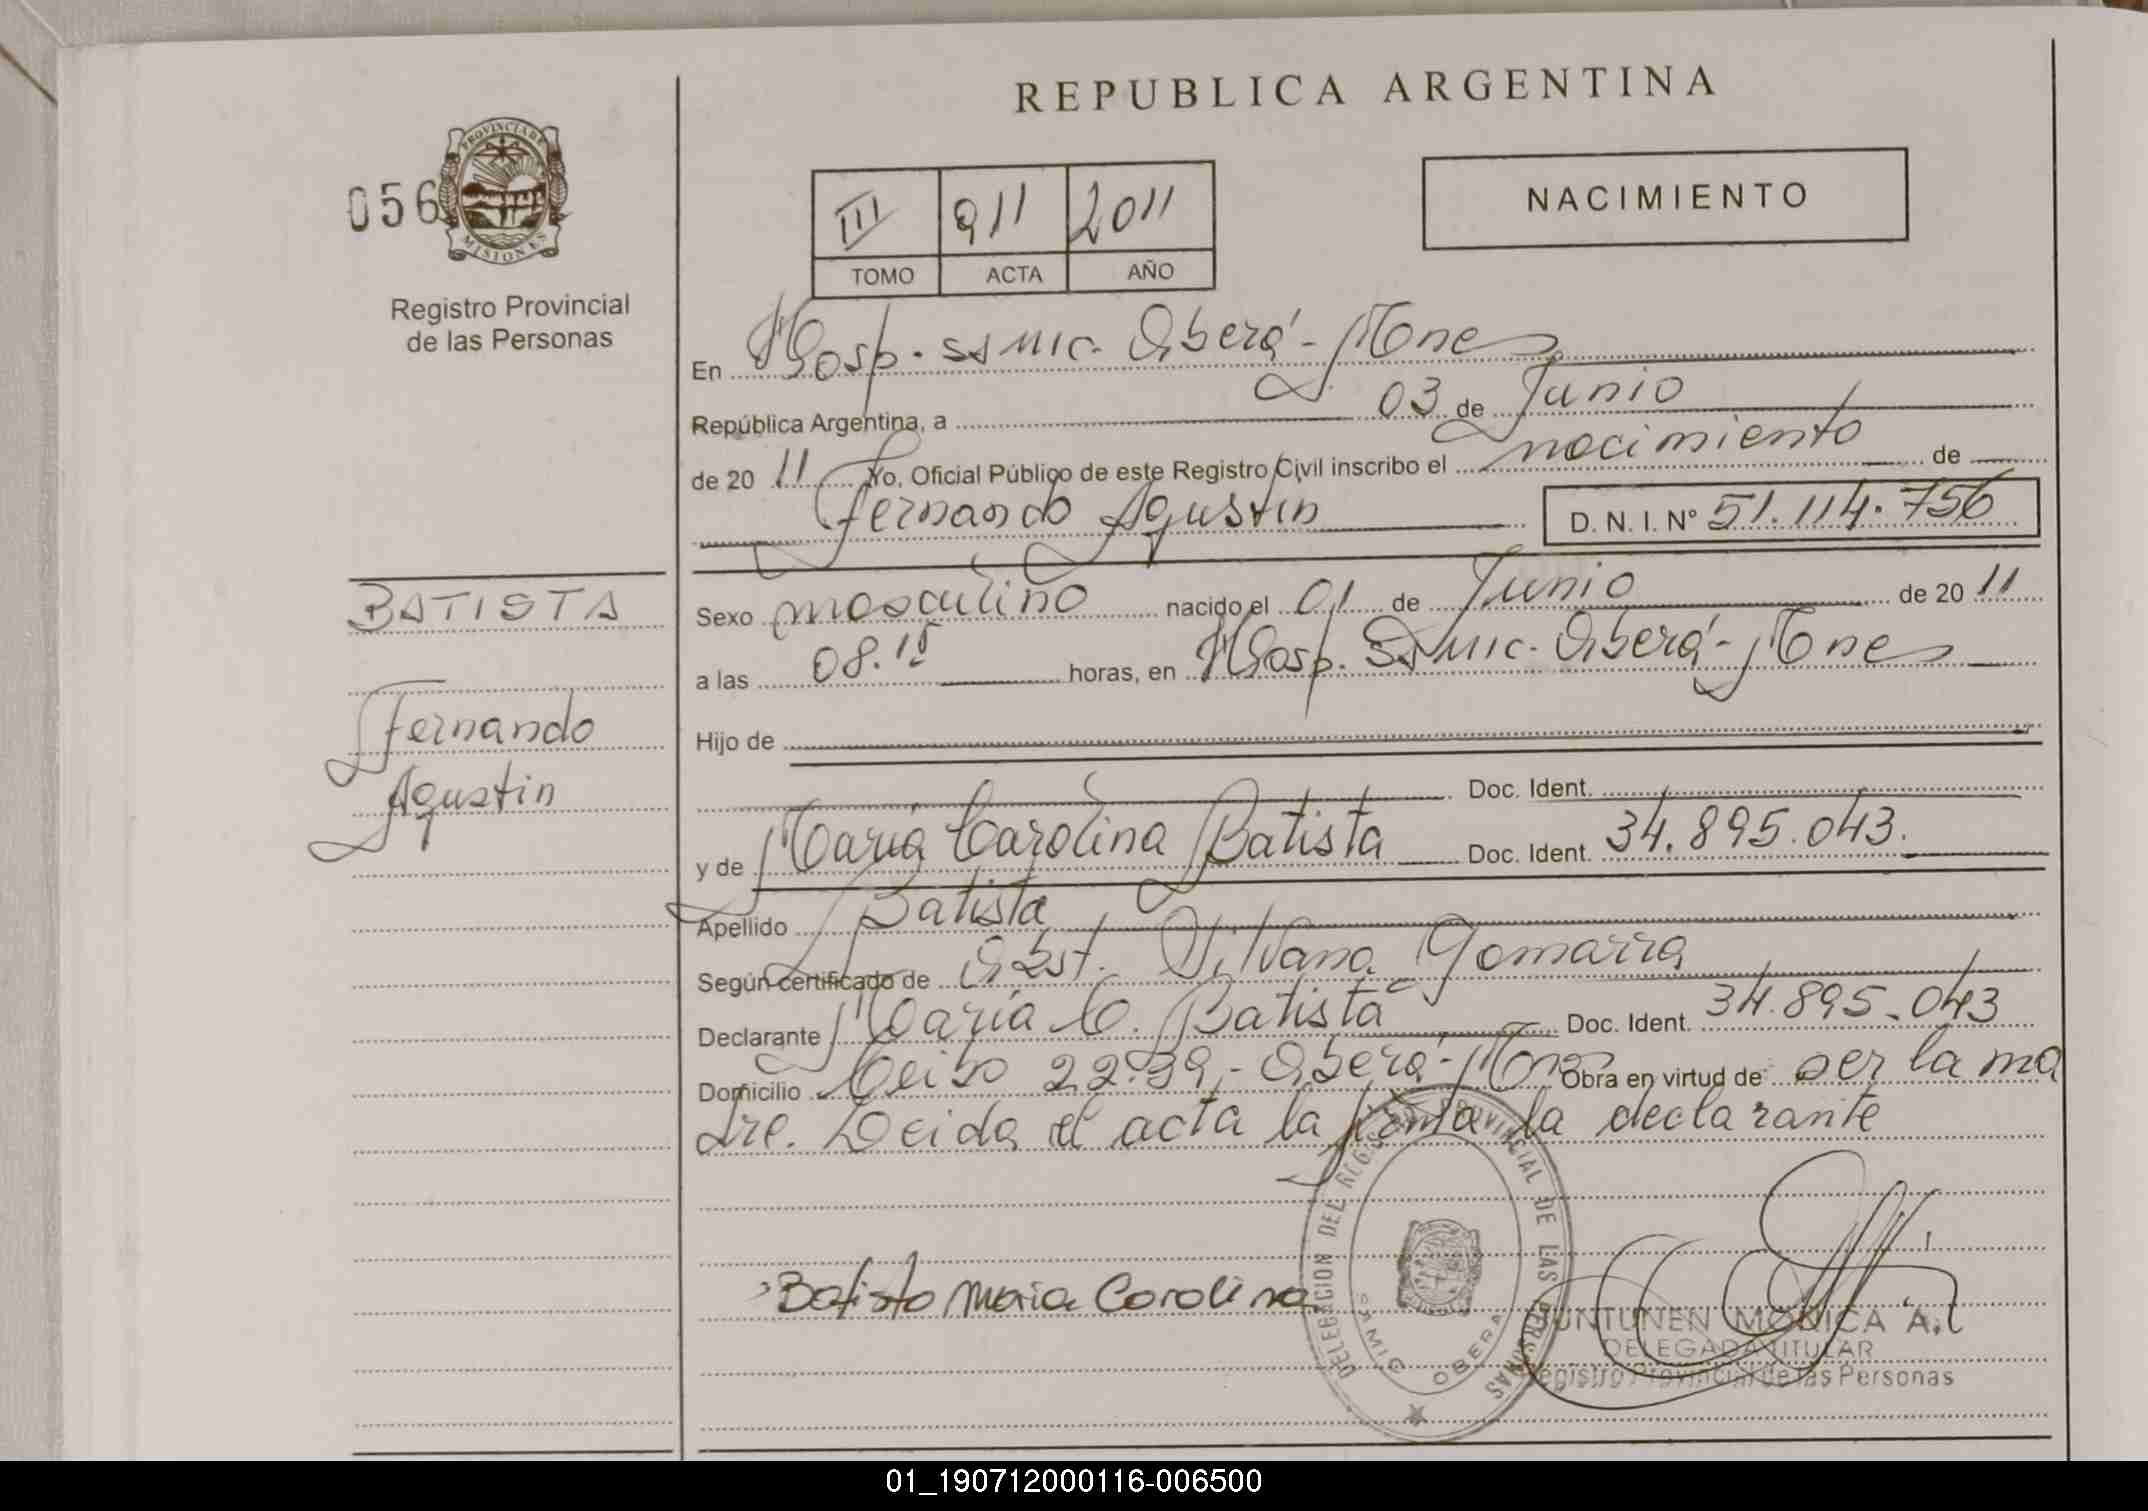 REPUBLICA ARGENTINA
056
PROVINCIA DE
MISIONES
Registro Provincial
de las Personas
III 911 2011
TOMO ACTA AÑO
NACIMIENTO
En Hosp. SAMIC. Oberá - Mnes
República Argentina, a 03 de Junio
de 20 11 Yo, Oficial Público de este Registro Civil inscribo el nacimiento de
Fernando Agustin D. N. I. Nº 51.114.756
BATISTA
Fernando
Agustin
Sexo masculino nacido el 01 de Junio de 20 11
a las 08.15 horas, en Hosp. SAMIC. Oberá - Mnes
Hijo de
Doc. Ident.
y de María Carolina Batista Doc. Ident. 34.895.043.
Apellido Batista
Según certificado de Obst. Silvana Gomarra
Declarante María C. Batista Doc. Ident. 34.895.043
Domicilio Ceibo - Oberá - Mnes Obra en virtud de ser la ma
dre. Leida el acta la firma la declarante
Batista Maria Carolina
DELEGACION DEL REGISTRO PROVINCIAL DE LAS PERSONAS
SAMIC OBERA
PUNTUNEN MONICA A.
DELEGADA TITULAR
Registro Provincial de las Personas
01_190712000116-006500